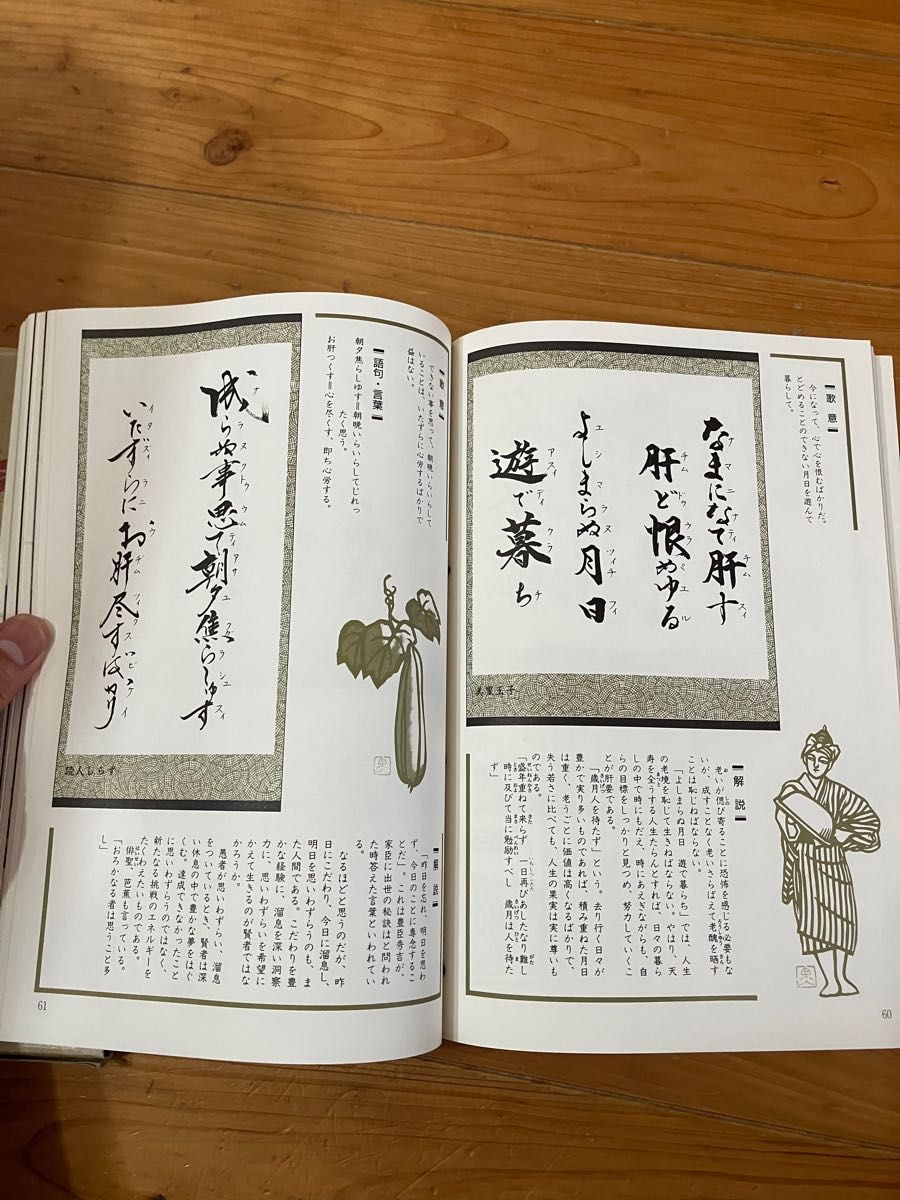 歌意
今になって、心で心を恨むばかりだ。
とどめることのできない月日を遊んで
暮らして。
なまになて肝す
ナマニナティチムスィ
肝ど恨めゆる
チムドゥウラミユル
よしまらぬ月日
ユシマラヌツィチフィ
遊で暮ち
アスィディクラチ
解説
老いが偲び寄ることに恐怖を感じる必要もな
いが、成すことなく老いさらばえて老醜を晒す
ことは恥じねばならない。
「よしまらぬ月日 遊で暮らち」では、人生
の老境を恥じて生きねばならない。やはり、天
寿を全うする人生たらんとすれば、日々の暮ら
しの中で時にもだえ、時にあえぎながらも、自
らの目標をしっかりと見つめ、努力していくこ
とが肝要である。
「歳月人を待たず」という。去り行く日々が
豊かで実り多いものであれば、積み重ねた月日
は重く、老うごとに価値は高くなるばかりで、
失う若さに比べても、人生の果実は実に尊いも
のである。
「盛年重ねて来らず 一日再びあしたなり難し
時に及びて当に勉励すべし 歳月は人を待た
ず」
60
歌意
できない事を思って、朝晩いらいらして
いることは、いたずらに心労するばかりで
益はない。
語句・言葉
朝夕焦らしゆす＝朝晩いらいらしてじれっ
たく思う。
お肝つくす＝心を尽くす、即ち心労する。
成らぬ事思て朝夕焦らしゆす
いたずらにお肝尽すばかり
読人しらず
解説
「昨日を忘れ、明日を思わ
ず、今日のことに専念するこ
とだ」。これは豊臣秀吉が、
家臣に出世の秘訣はと問われ
た時答えた言葉といわれてい
る。
なるほど思うのだが、昨
日にこだわり、今日に溜息し、
明日を思いわずらうのも、ま
た人間である。こだわりを豊
かな経験に、溜息を深い洞察
力に、思いわずらいを希望に
かえて生きるのが賢者ではな
かろうか。
愚者が思いわずらい、溜息
をついているとき、賢者は深
い休息の中で豊かな夢をはぐ
くむ。達成できなかったこと
に思いわずらうのではなく、
新たなる挑戦のエネルギーを
たくわえたいものである。
俳聖 芭蕉も言っている。
「おろかなる者は思うこと多
し」
61